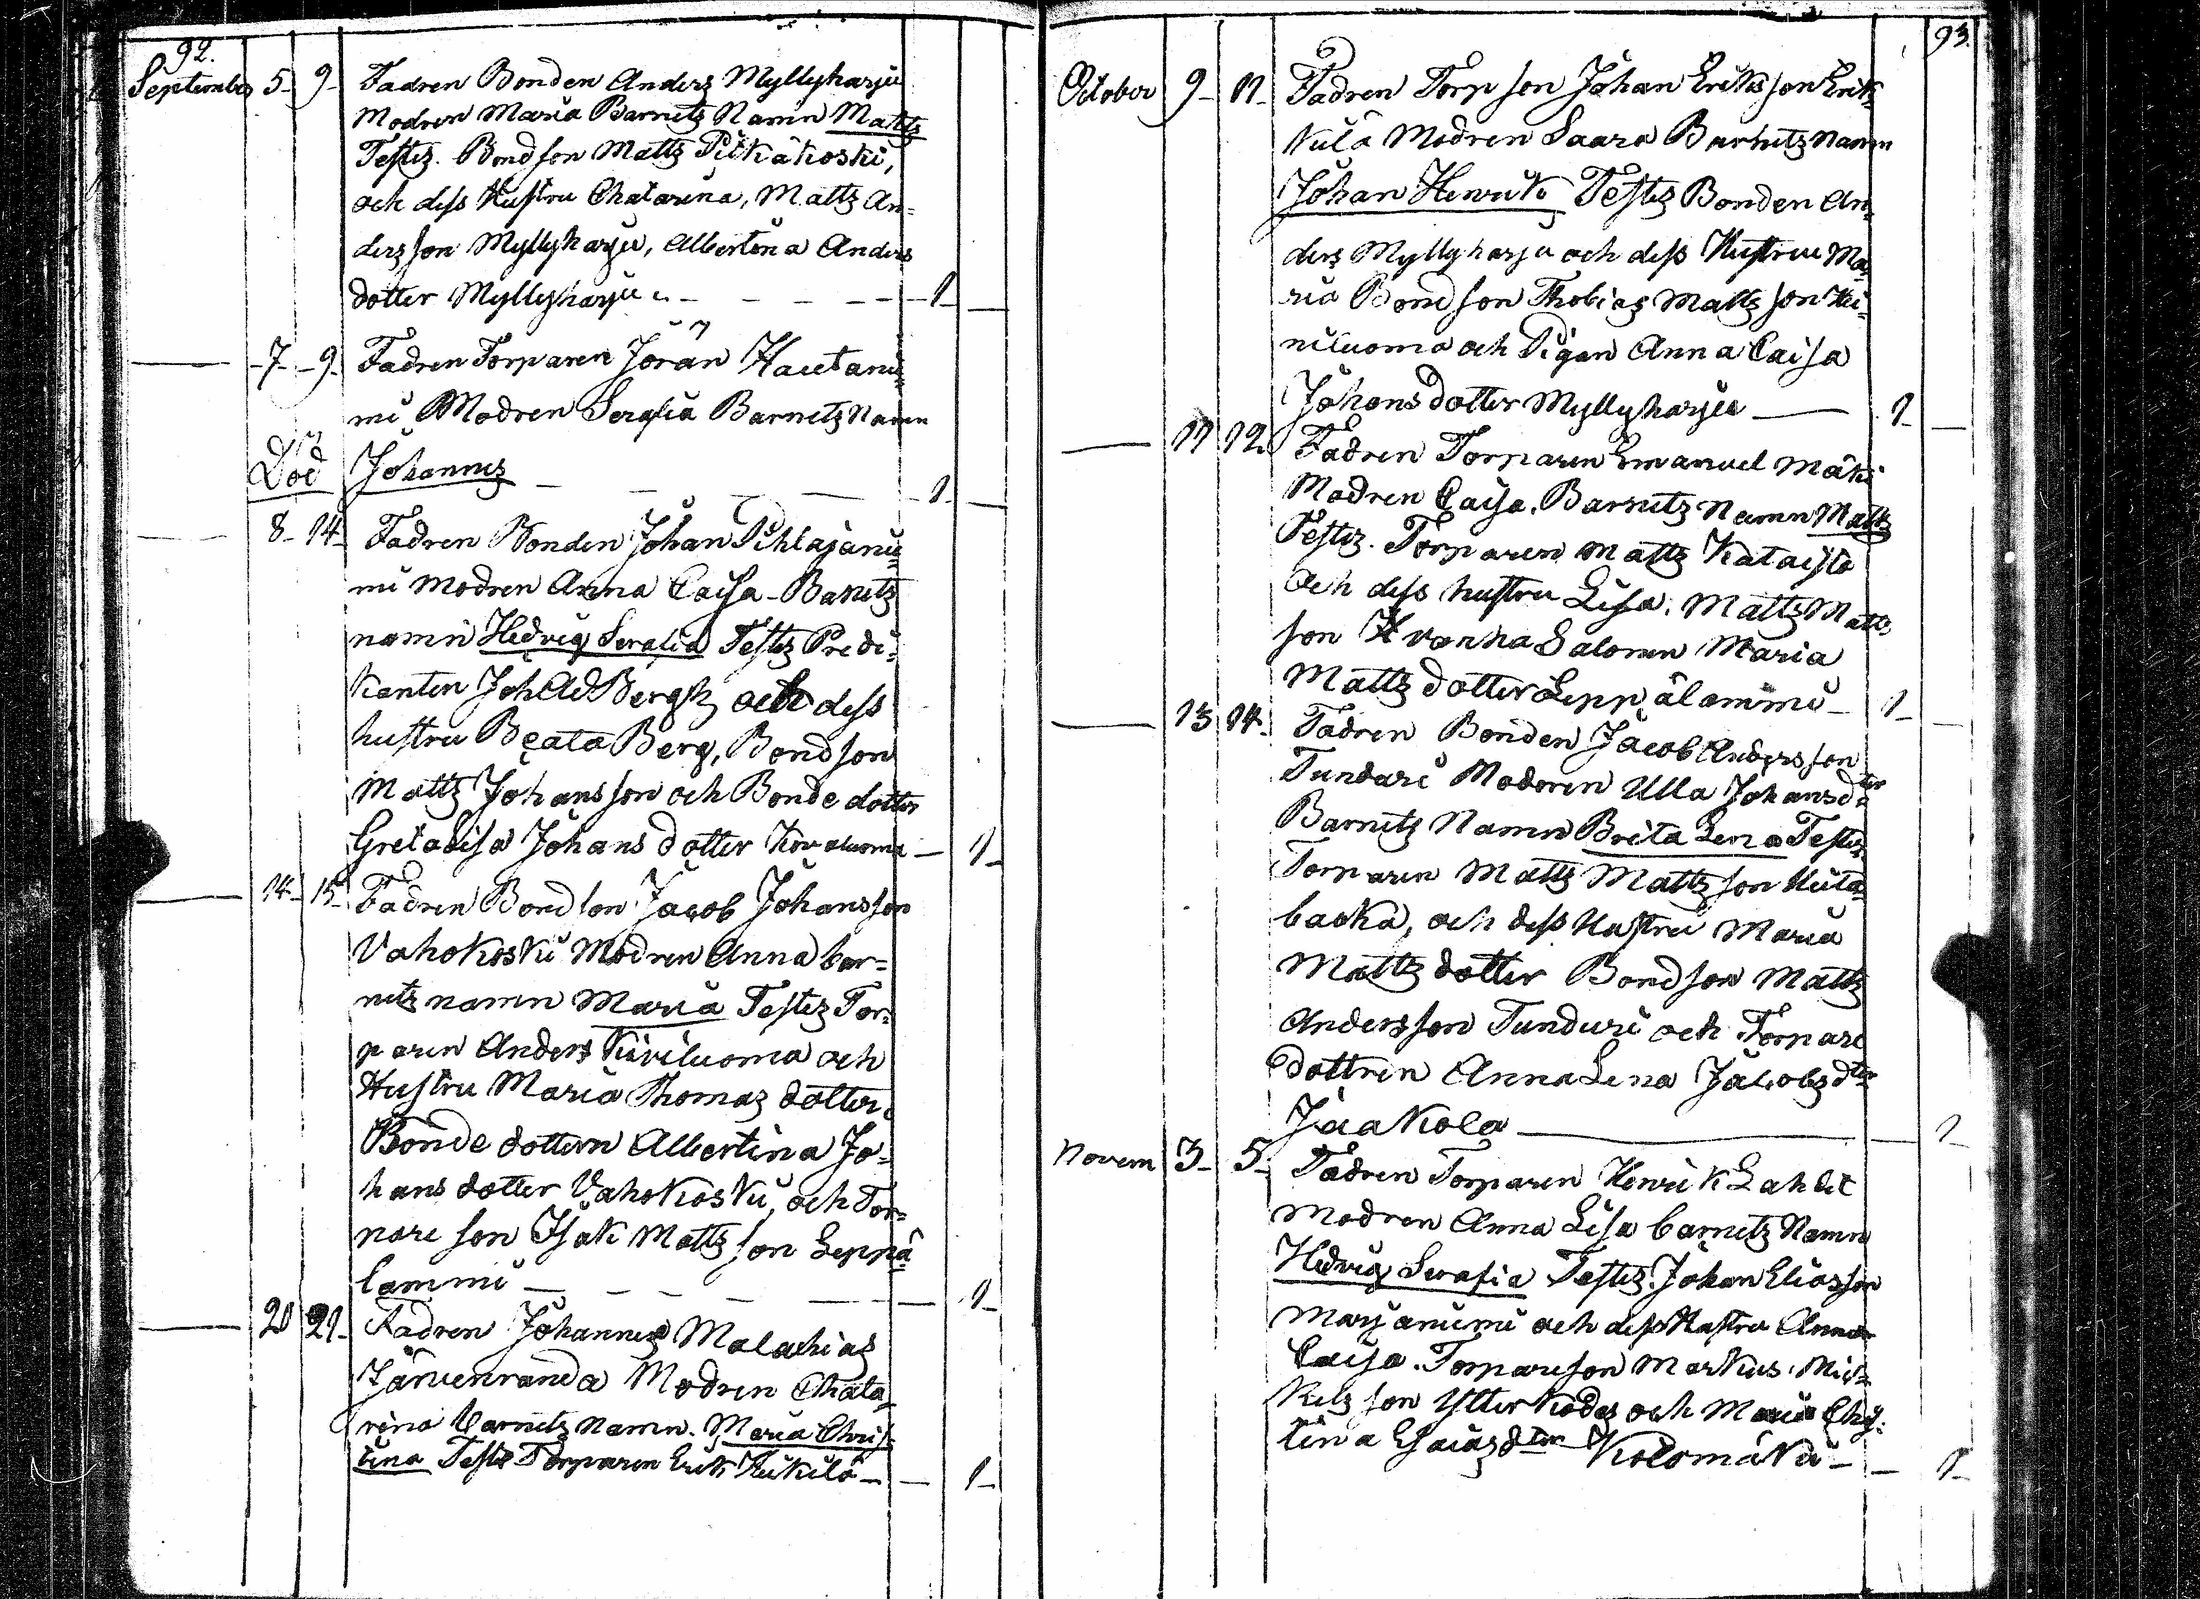 92.
September 5 9 Fadren Bonden Anders Myllyharju
Modren Maria Barnetz Namn Mattz
Testes. Bondson Mattz Pitkäkoski,
och dess Hustru Chatarina, Mattz An=
dersson Myllyharju, Albertina Anders
dotter Myllyharju 1
7 9 Fadren Torparen Jöran Hautanie=
mi Modren Serafia Barnetz Namn
Död Johannes 1
8 14 Fadren Bonden Johan Pihlajanie=
mi Modren Anna Caisa Banetz
namn Hedvig Serafia Testes Predi=
kanten Joh Ad Bergh och dess
hustru Beata Berg, Bondson
Mattz Johansson och Bonde dotter
Greta Lisa Johansdotter 1
14 15 Fadren Bondson Jacob Johansson
Vahokoski Modren Anna bar=
netz namn Maria Testes Tor=
paren Anders Kiviluoma och
Hustru Maria Thomas dotter.
Bonde dottern Albertina Jo=
hans dotter Vahokoski, och Tor=
pare son Isak Mattz son Leppä=
lammi 1
20 21 Fadren Johannes Malachias
Järvenranda Modren Chata=
rina Barnetz namn. Maria Chris=
tina Testes Torparen Erik 1
93.
October 9 11 Fadren Torp son Johan Eriksson Erik=
kilä Modren Saara Barnetz Namn
Johan Henrik Testes Bonden An=
ders Myllyharju och dess Hustru Ma=
ria Bondson Thobias Mattz son
niluoma och Pigan Anna Caisa
Johansdotter Myllyharju 1
11 12 Fadren Torparen Emanuel Mäki
Modren Caisa. Barnetz Namn Mattz
Testes. Torparen Mattz Kataisto
och dess hustru Lisa. Mattz Matts
son Maria
Mattz dotter Leppälammi 1
13 14 Fadren Bonden Jacob Andersson
Tunduri Modoren Ulla Johansdter
Barnetz Namn Brita Lena Testes
Torparen Mattz Mattz son
backa, och dess Hustru Maria
Mattz dotter Bondson Mattz
Andersson Tunduri och Torpare
dottren Anna Lena Jacobs dter
Jaakola 1
Novem 3 5 Fadren Torparen Henrik Lahdet
Modren Anna Lisa barnetz Namn
Hedvig Serafia Testes. Johan Eliasson
Marjaniemi och dess Hustru Anna
Caisa. Torpareson Markus Mic=
kels son och Maria Chris=
tina Esaias dter Kolomäki 1